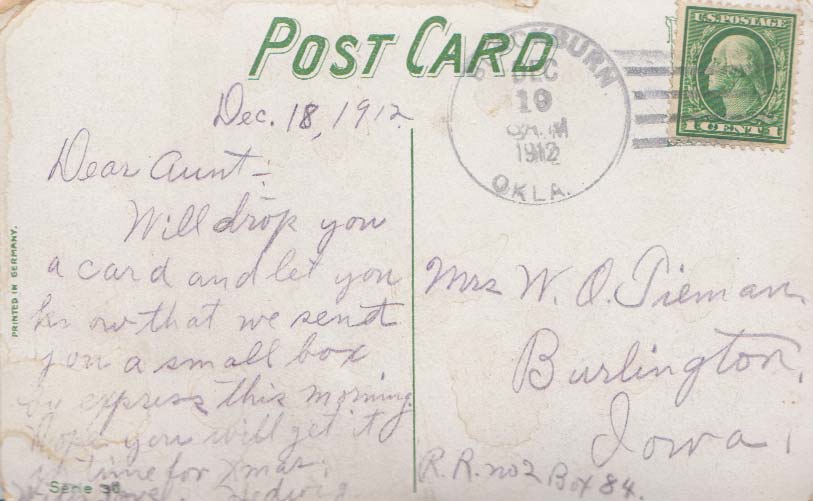 POST CARD
U.S. POSTAGE
1 CENT 1
BLACKBURN
DEC
19
1912
OKLA.
Dec. 18, 1912.
Dear Aunt:-
Will drop you
a card and let you
know that we send
you a small box
by express this morning.
Hope you will get it
in time for Xmas.
Hedwig
Mrs W. O. Tieman,
Burlington,
Iowa,
R.R. no 2 Box 84.
PRINTED IN GERMANY.
Serie 36